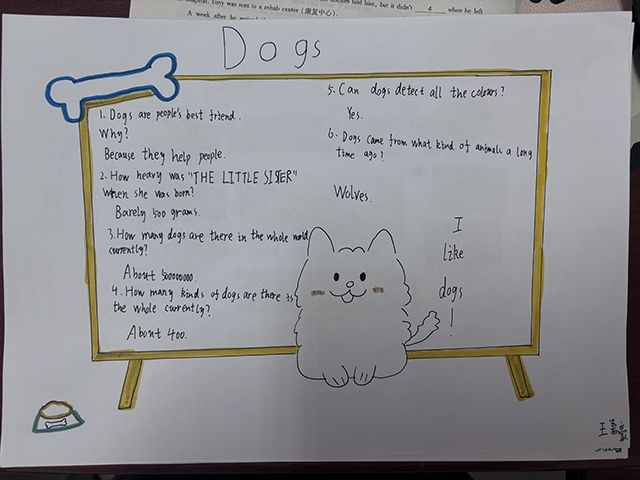 Tony was sent to a rehab center (康复中心)
told him, but it didn't 4 when he left
A week after he
Dogs
1. Dogs are people's best friend.
Why?
Because they help people.
2. How heavy was "THE LITTLE SISTER"
when she was born?
Barely 500 grams.
3. How many dogs are there in the whole world
currently?
About 500000000
4. How many kinds of dogs are there is
the whole currently?
About 400.
5. Can dogs detect all the colours?
Yes.
6. Dogs came from what kind of animals a long
time ago?
Wolves.
I
like
dogs
!
王